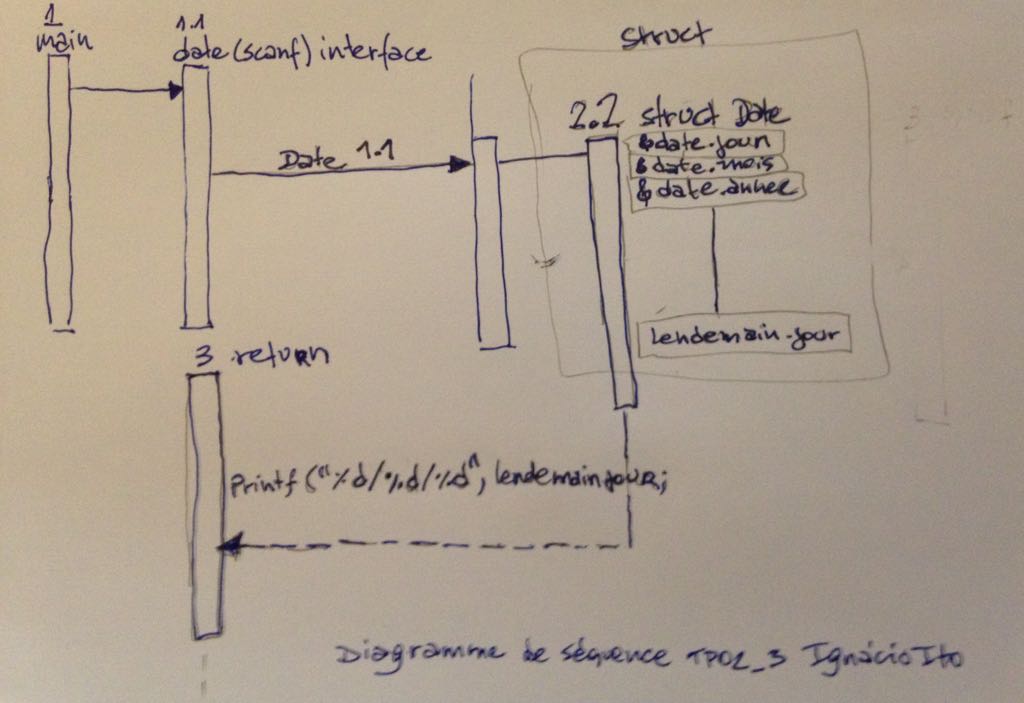 1
main
1.1
date(scanf) interface
struct
Date 1.1
2.2 struct Date
&date.jour
&date.mois
&date.annee
lendemain.jour
3 return
Printf ("%d/%d/%d", lendemainjour;
Diagramme de séquence TP02_3 Ignácio Ito